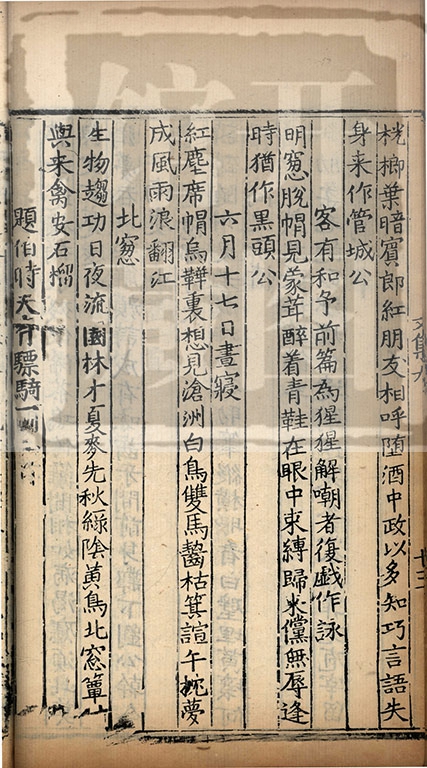 桄榔葉暗賔郎紅朋友相呼堕酒中政以多知巧言語失
身来作管城公
客有和予前篇為猩猩解嘲者復戯作詠
明窓脫帽見蒙茸醉着青鞋在眼中束縛歸来儻無辱逢
時猶作黒頭公
六月十七日晝寢
紅塵席帽烏鞾裏想見滄洲白鳥雙馬齧枯箕諠午枕夢
成風雨浪翻江
北窓
生物趨功日夜流園林才夏麥先秋綠陰黃鳥北窓簟
與来禽安石榴
題伯時天育驃騎